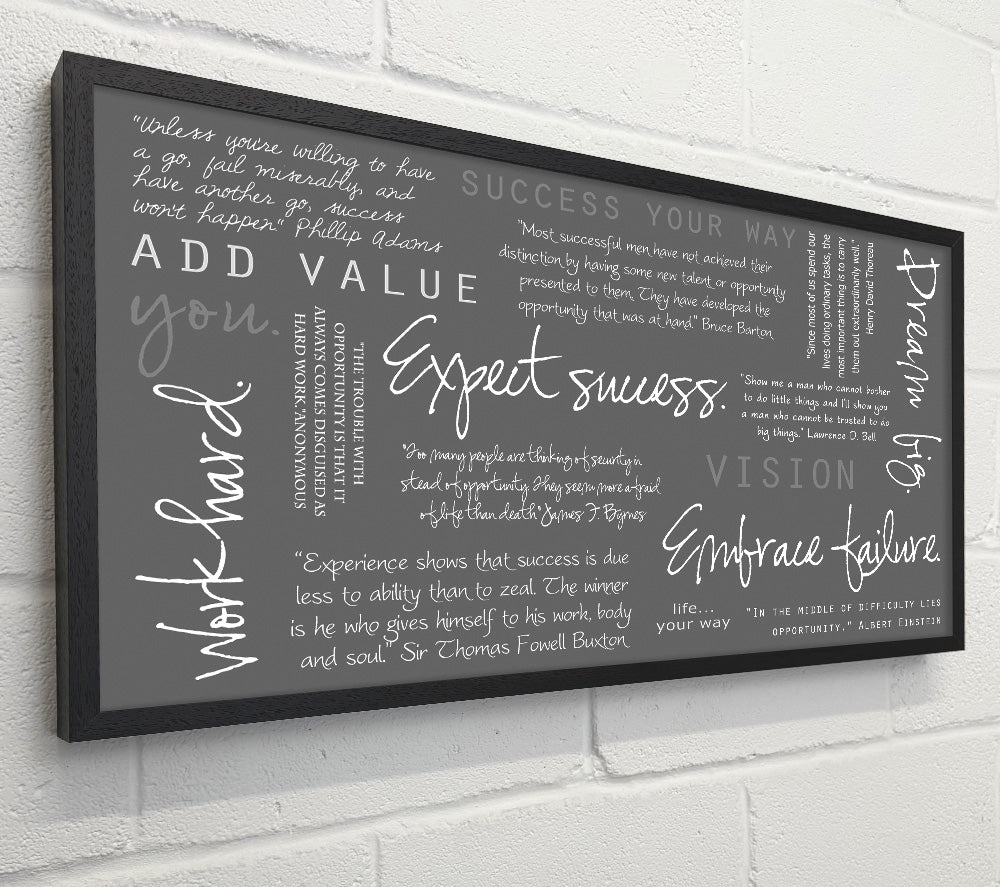 "Unless you're willing to have
a go, fail miserably, and
have another go, success
won't happen" Phillip Adams
SUCCESS YOUR WAY
ADD VALUE
you.
"Most successful men have not achieved their
distinction by having some new talent or opportunity
presented to them. They have developed the
opportunity that was at hand." Bruce Barton
"Since most of us spend our
lives doing ordinary tasks, the
most important thing is to carry
them out extraordinarily well."
Henry David Thoreau
Dream big.
Work hard.
"THE TROUBLE WITH
OPPORTUNITY IS THAT IT
ALWAYS COMES DISGUISED AS
HARD WORK."ANONYMOUS
Expect success.
"Show me a man who cannot bother
to do little things and I'll show you
a man who cannot be trusted to do
big things." Lawrence D. Bell
"Too many people are thinking of security in
stead of opportunity. They seem more afraid
of life than death" James F. Byrnes
VISION
Embrace failure.
"Experience shows that success is due
less to ability than to zeal. The winner
is he who gives himself to his work, body
and soul." Sir Thomas Fowell Buxton
life...
your way
"IN THE MIDDLE OF DIFFICULTY LIES
OPPORTUNITY." ALBERT EINSTEIN